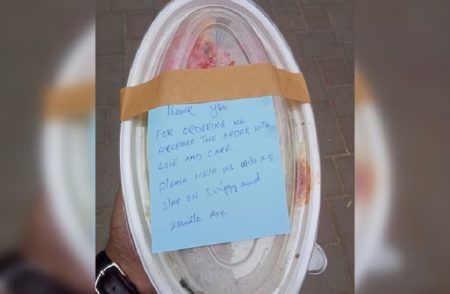 Thank you.
FOR ORDERING WE
PREPARE THE ORDER WITH
LOVE AND CARE.
PLEASE HELP US WITH A 5
STAR ON Swiggy and
Zomato App